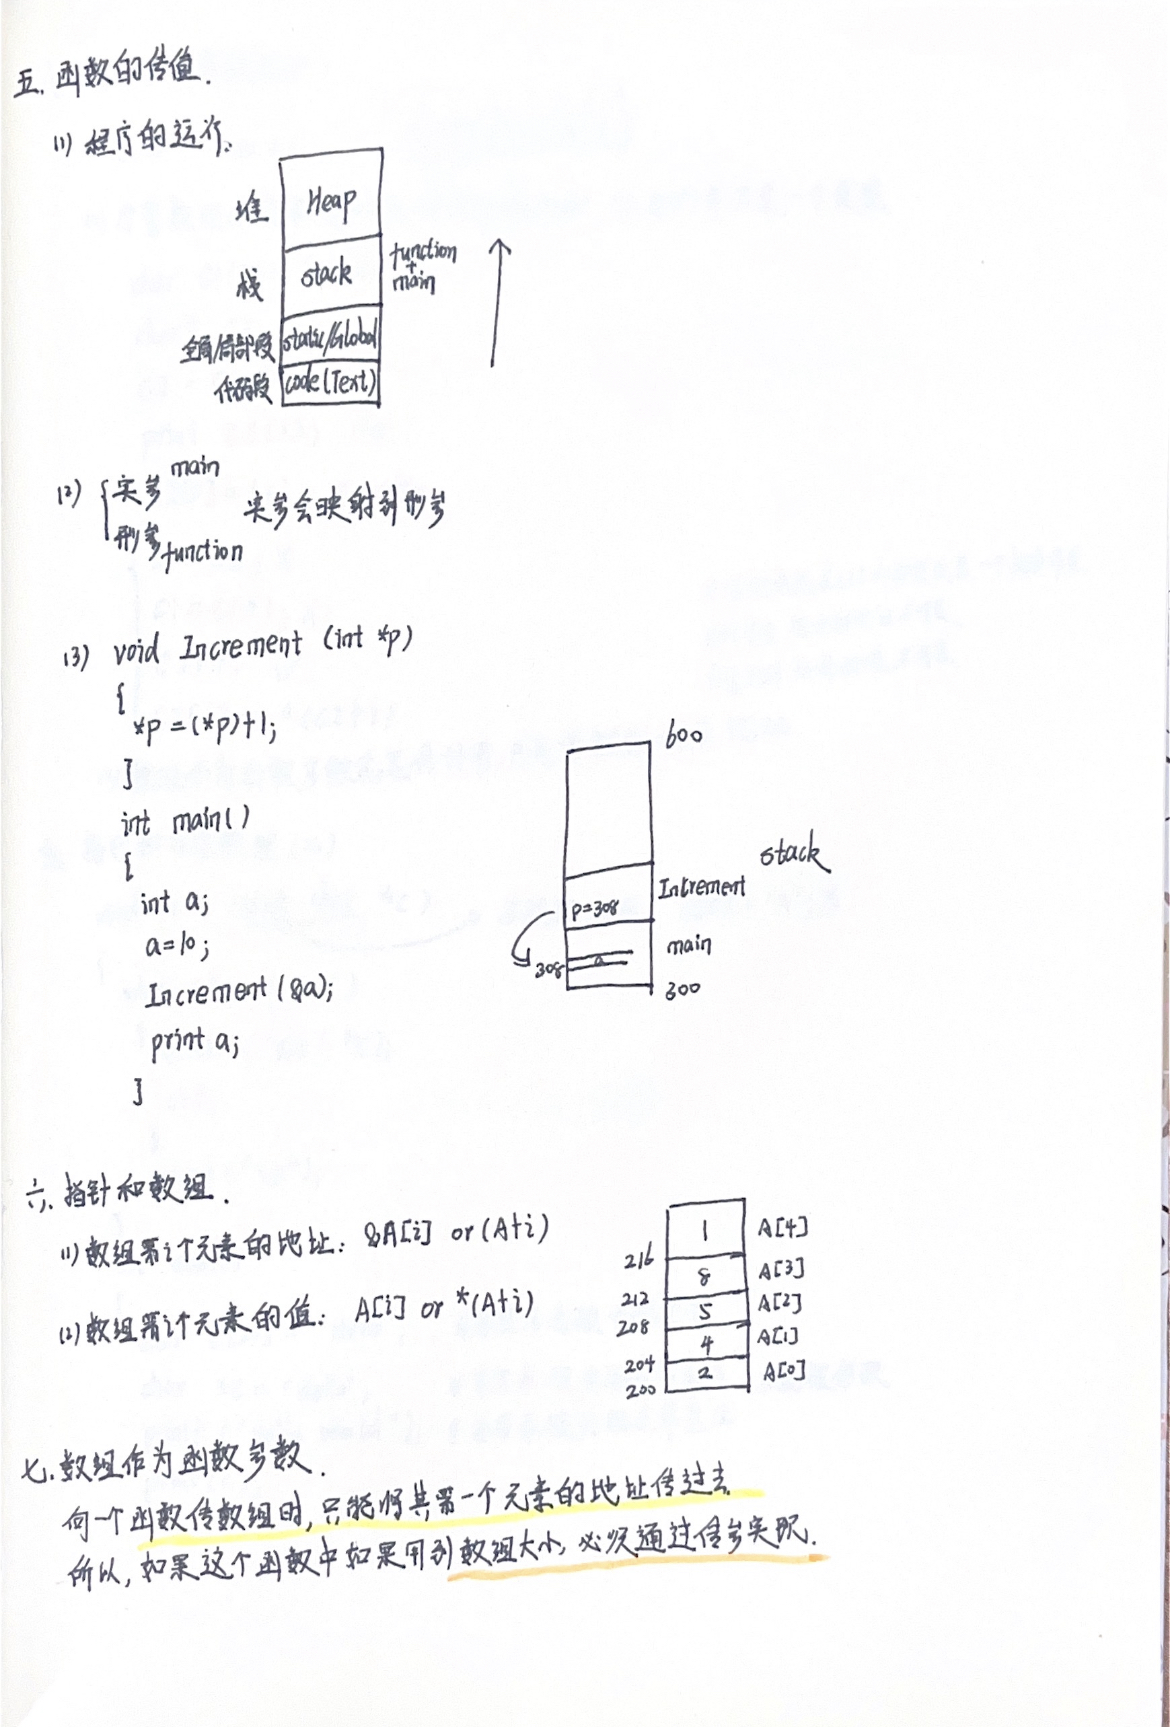 五. 函数的传值.
(1) 程序的运行.
堆 Heap
栈 stack function + main
全局/局部段 static/Global
代码段 code(Text)
(2) { 实参 main
形参 function
实参会映射到形参
(3) void Increment (int *p)
{
*p=(*p)+1;
}
int main()
{
int a;
a=10;
Increment (&a);
print a;
}
600
stack
Increment
p=308
main
308 a
300
六. 指针和数组.
(1) 数组第i个元素的地址: &A[i] or (A+i)
(2) 数组第i个元素的值: A[i] or *(A+i)
1 A[4]
216
8 A[3]
212
5 A[2]
208
4 A[1]
204
2 A[0]
200
七. 数组作为函数参数.
向一个函数传数组时, 只能将其第一个元素的地址传过去
所以, 如果这个函数中如果用到数组大小, 必须通过传参实现.